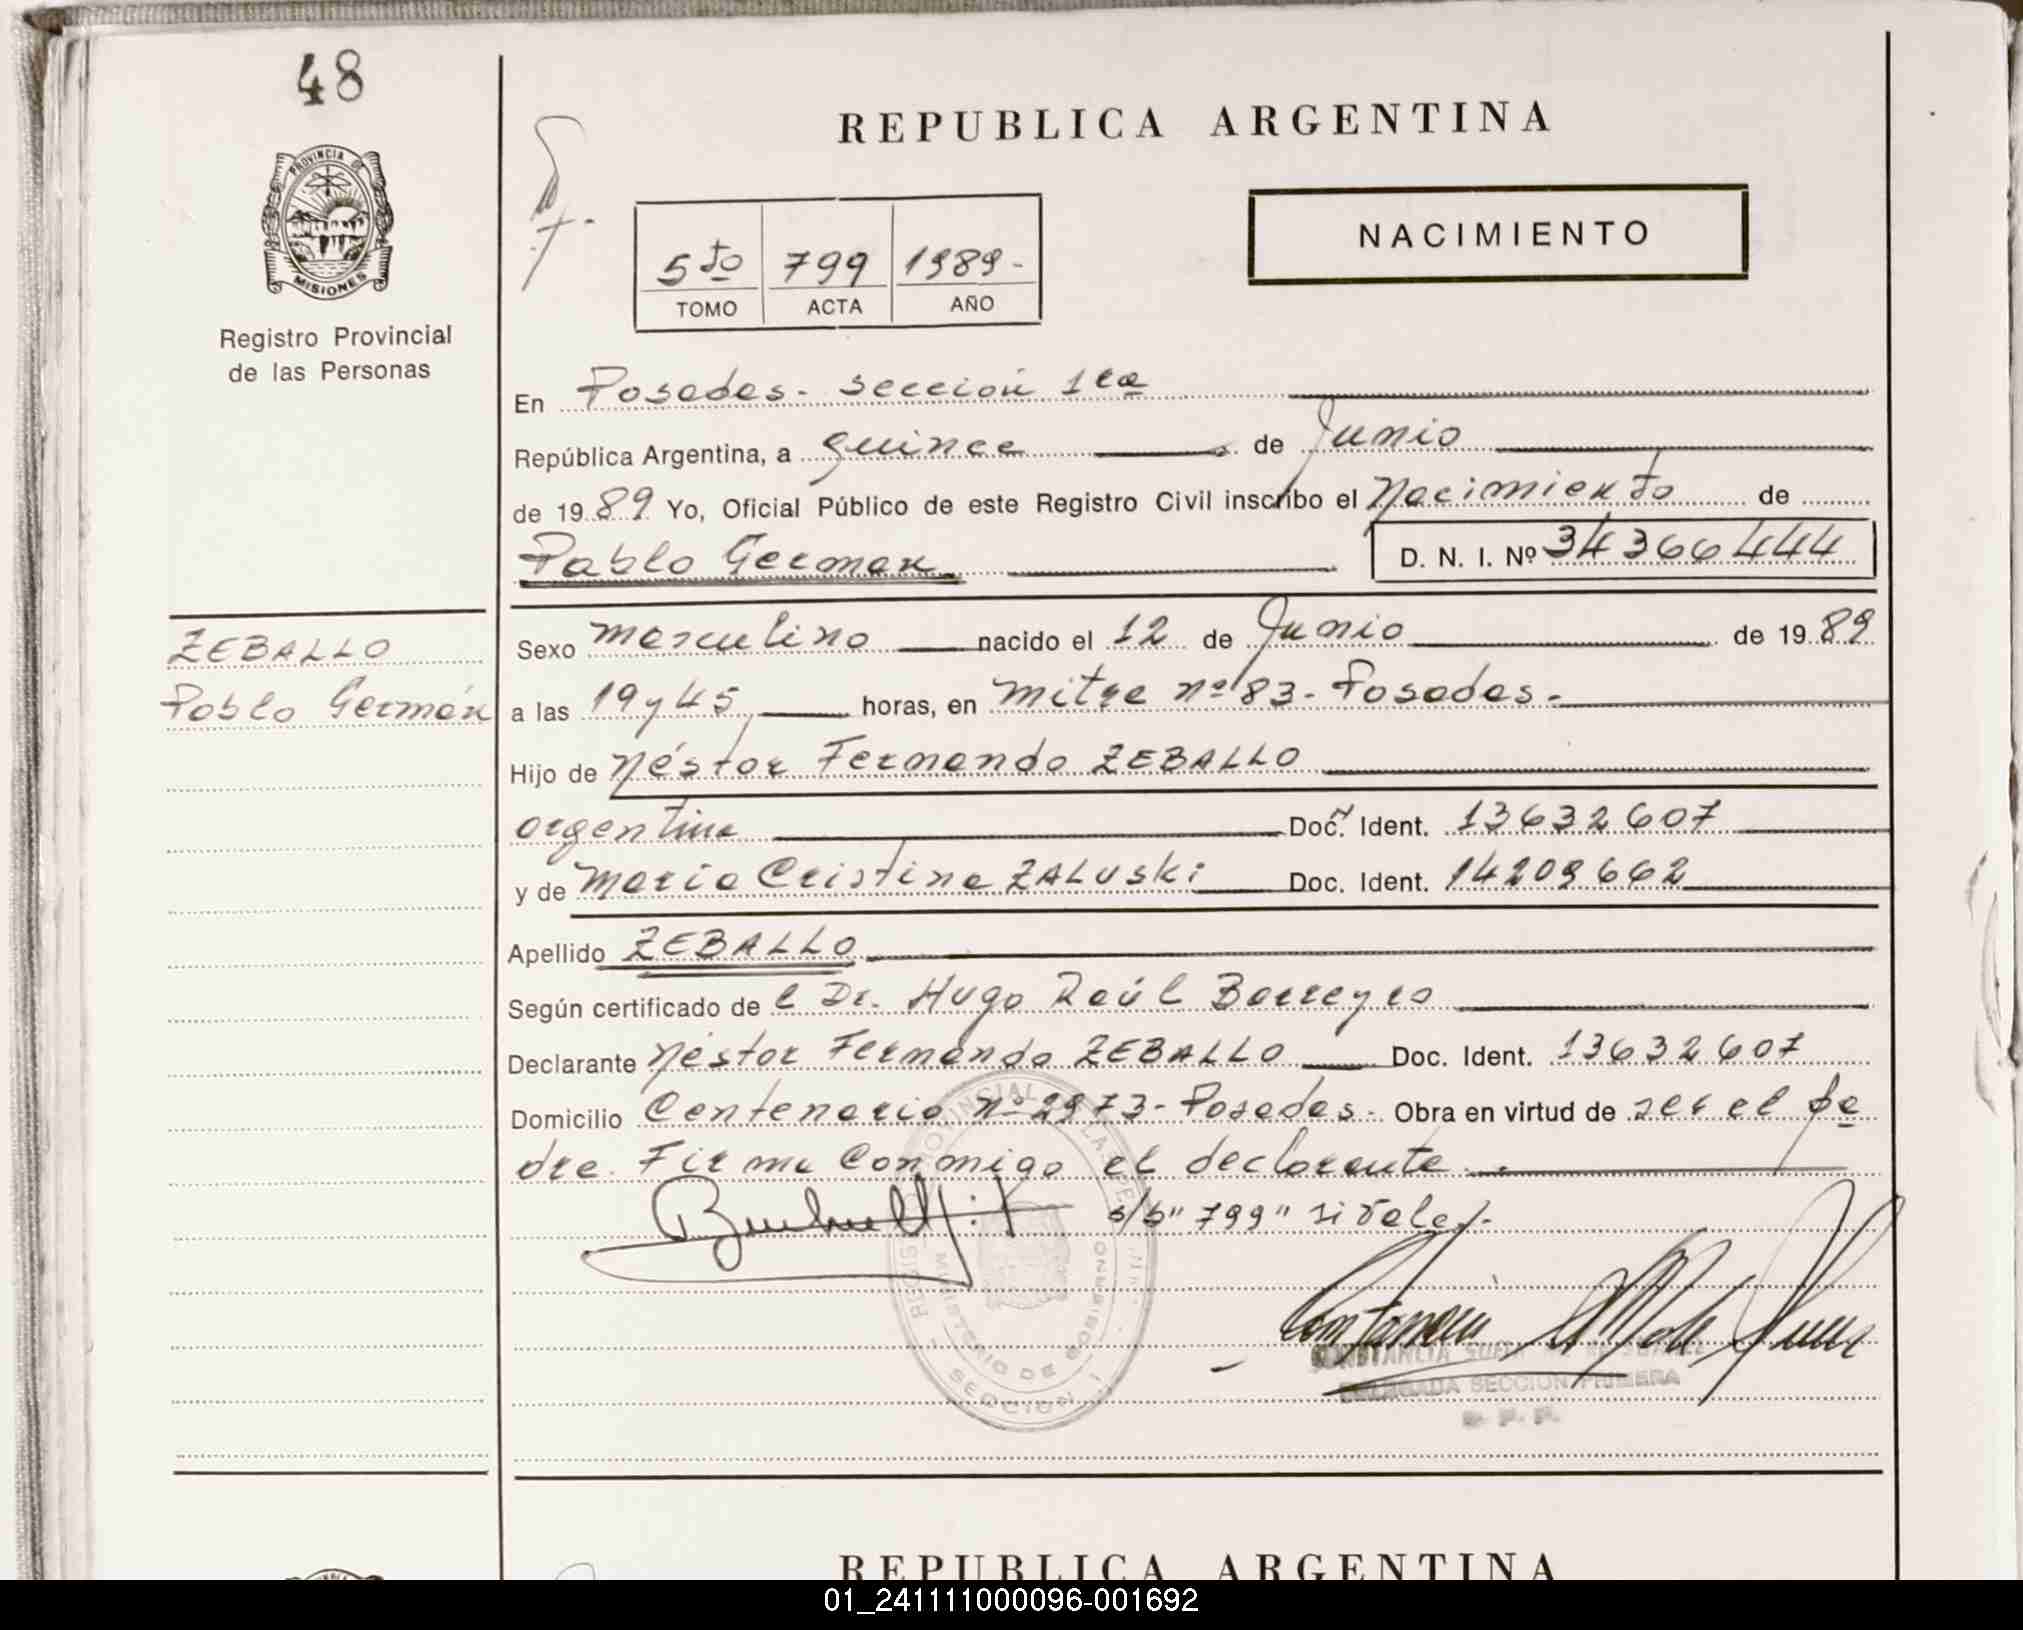 48
REPUBLICA ARGENTINA
PROVINCIA DE
MISIONES
Registro Provincial
de las Personas
NACIMIENTO
5to 799 1989-
TOMO ACTA AÑO
En Posadas. sección 1ra
República Argentina, a quince de Junio
de 1989 Yo, Oficial Público de este Registro Civil inscribo el Nacimiento de
Pablo German D. N. I. Nº 34366444
ZEBALLO
Pablo Germán
Sexo masculino nacido el 12 de Junio de 1989
a las 19 y 45 horas, en mitre nº 83- Posadas.
Hijo de Néstor Fernando ZEBALLO
argentino Doc. Ident. 13632607
y de Maria Cristina ZALUSki Doc. Ident. 14209662
Apellido ZEBALLO
Según certificado de l Dr. Hugo Raúl Barreyro
Declarante Néstor Fernando ZEBALLO Doc. Ident. 13632607
Domicilio Centenario nº 2973- Posadas. Obra en virtud de ser el pa
dre. Firma conmigo el declarante.
s/b "799" si vale.
MINISTERIO DE GOBIERNO
SECCION 1
CONSTANCIA
DELEGADA SECCION PRIMERA
R. P. P.
REPUBLICA ARGENTINA
01_241111000096-001692